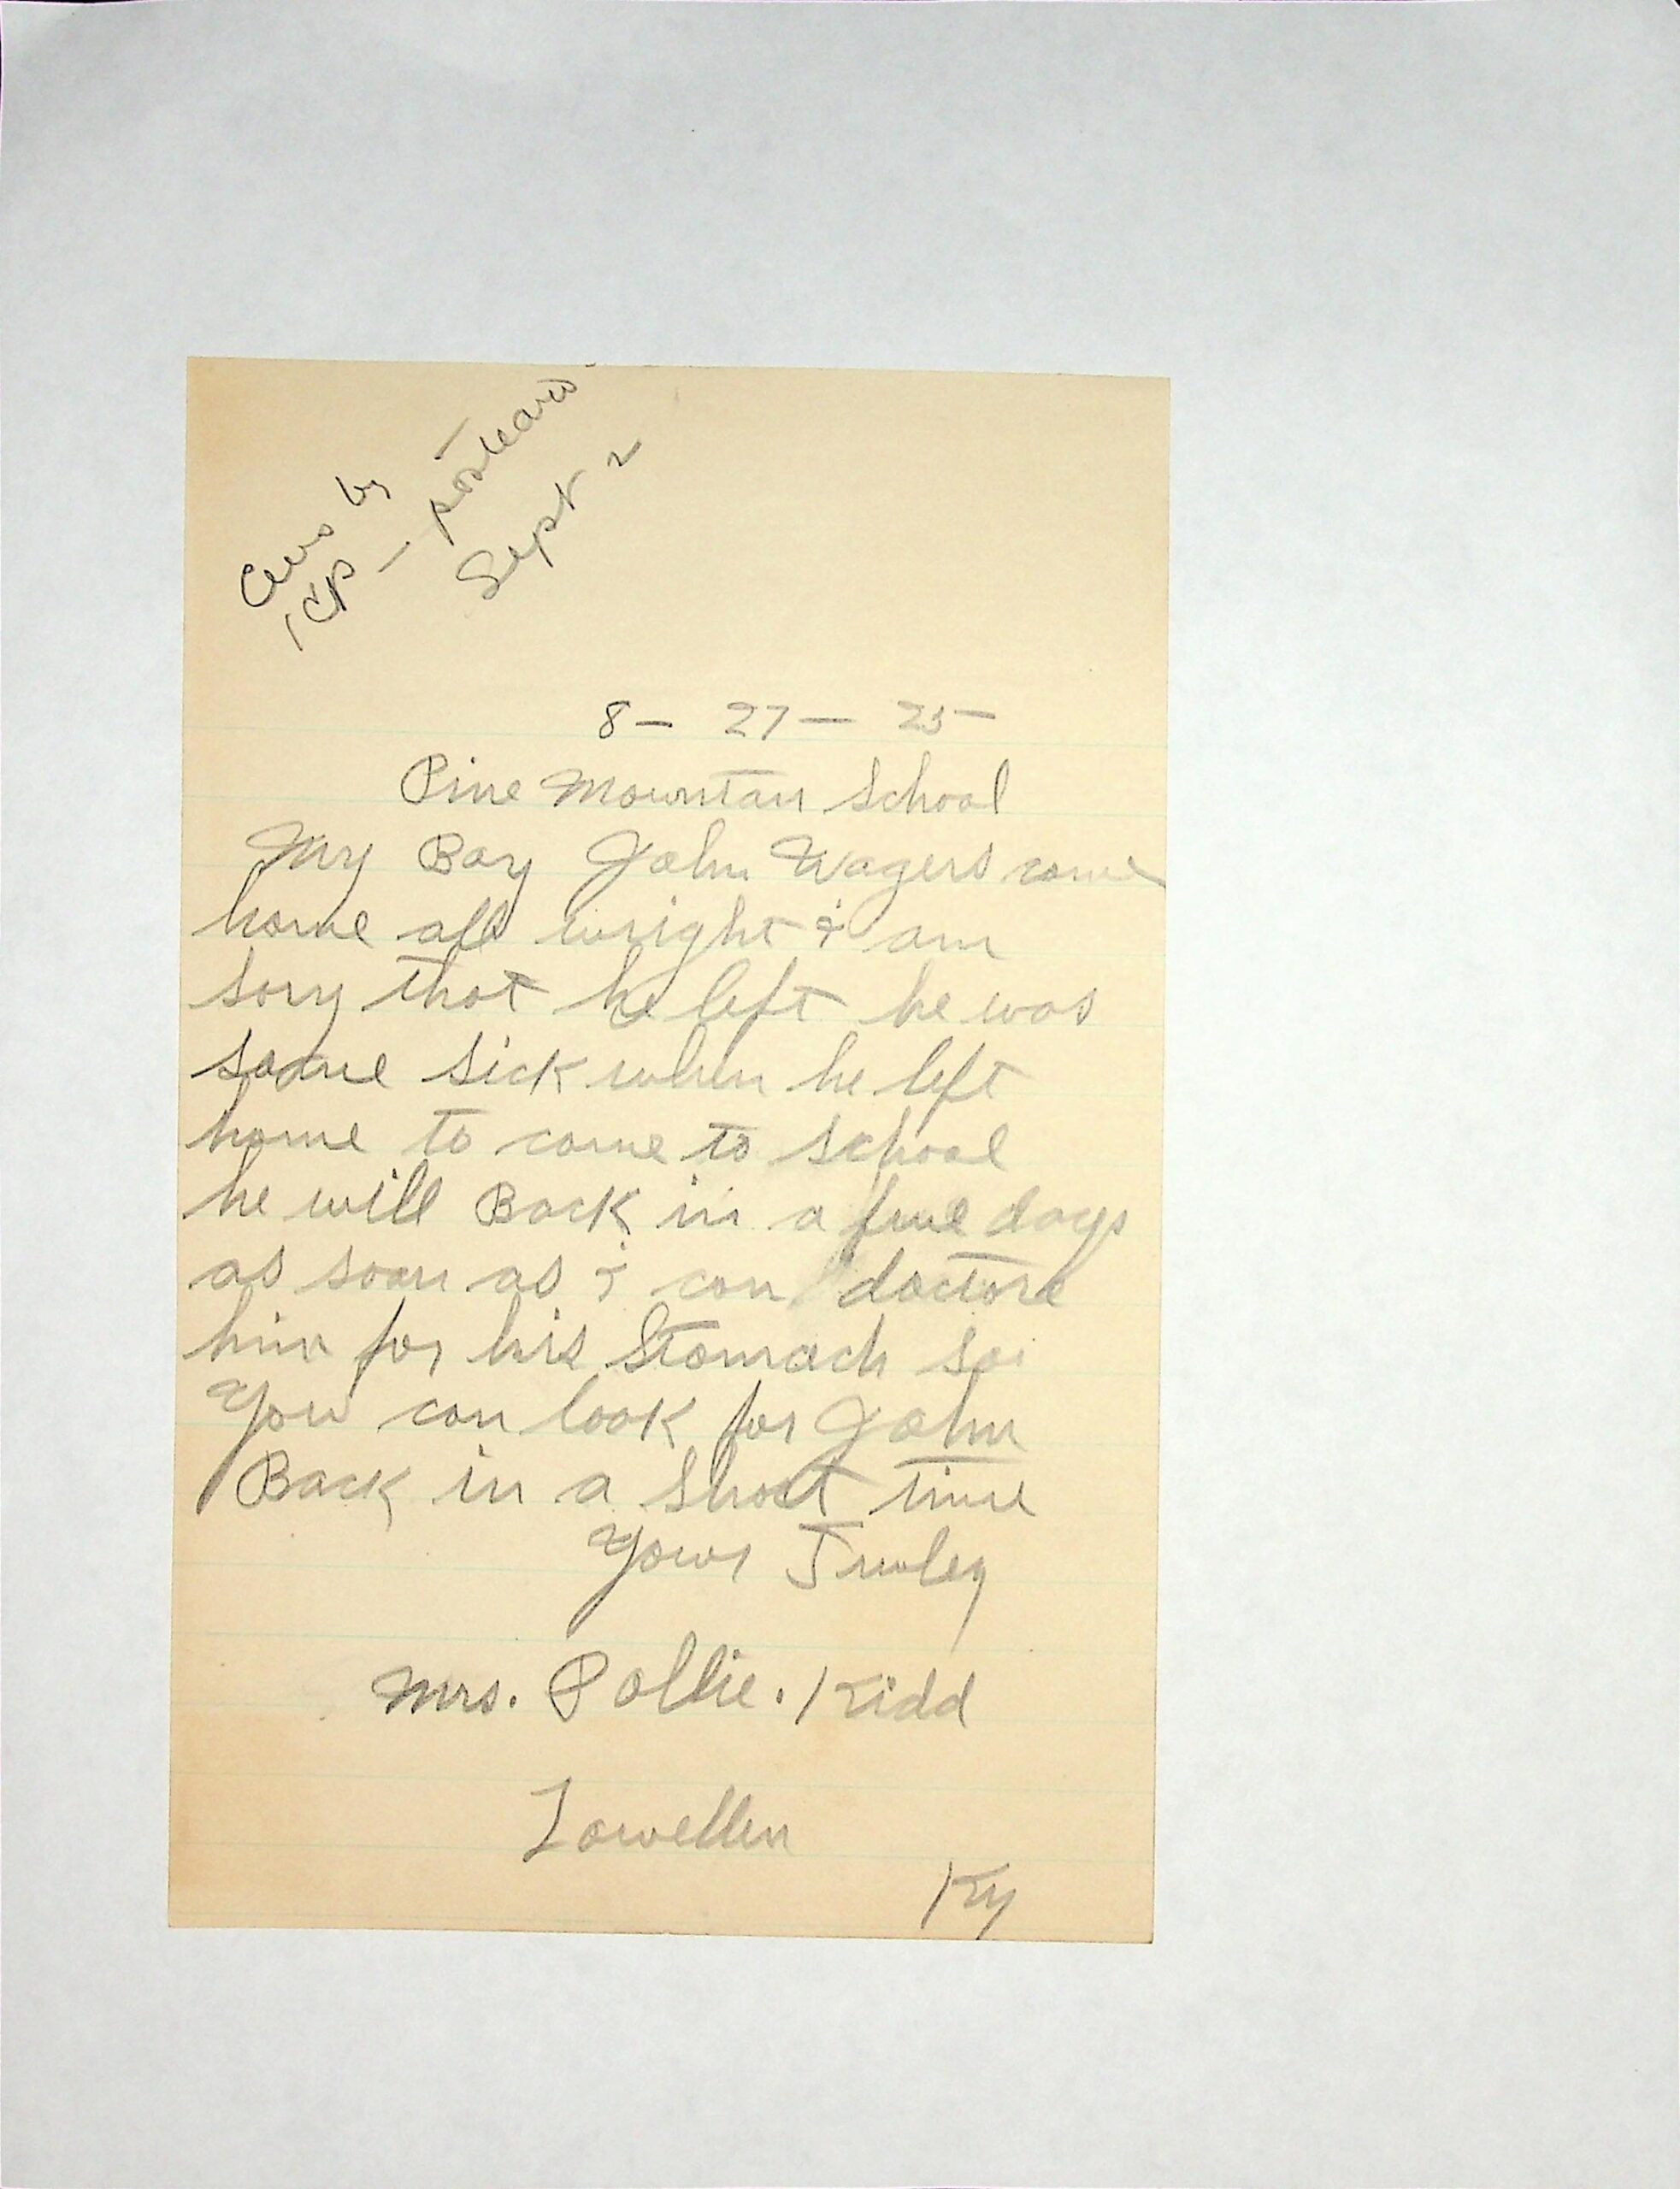 by
postcard
Sept 2
8 - 27 - 25
Pine Mountan School
My Boy John Wagers come
home all wright i am
sory that he left he was
some sick when he left
home to come to school
he will Back in a fiue days
as soon as i can doctore
him for his Stomach so
you can look for John
Back in a short time
yours Truley
Mrs. Pollie. Kidd
Lowellen
Ky